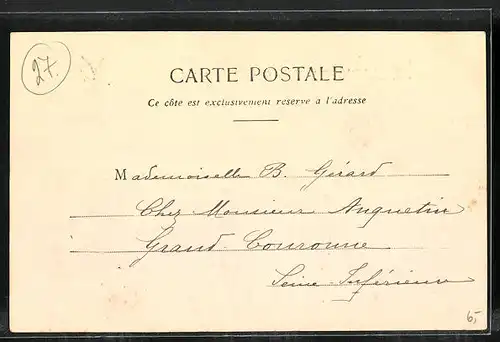 27.
CARTE POSTALE
Ce côte est exclusivement réservé a l'adresse
Mademoiselle B. Gérard
Chez Monsieur Anquetin
Grand-Couronne
Seine-Inférieure
6,-